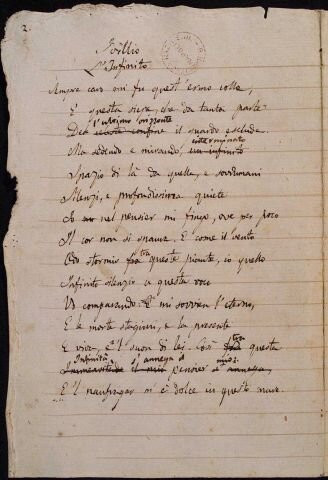 2.
Idillio
L'Infinito
Sempre caro mi fu quest'ermo colle,
E questa siepe, che da tanta parte
l'ultimo orizzonte
De il guardo esclude.
interminato
Ma sedendo e mirando, un infinito
Spazio di là da quella, e sovrumani
Silenzi, e profondissima quiete
Io nel pensier mi fingo, ove per poco
Il cor non si spaura. E come il vento
Odo stormir tra queste piante, io quello
Infinito silenzio a questa voce
Vo comparando: E mi sovvien l'eterno,
E le morte stagioni, e la presente
E viva, e 'l suon di lei. Così tra questa
Infinità s'annega il mio
Immensità il mio pensier
E 'l naufragar m'è dolce in questo mare.